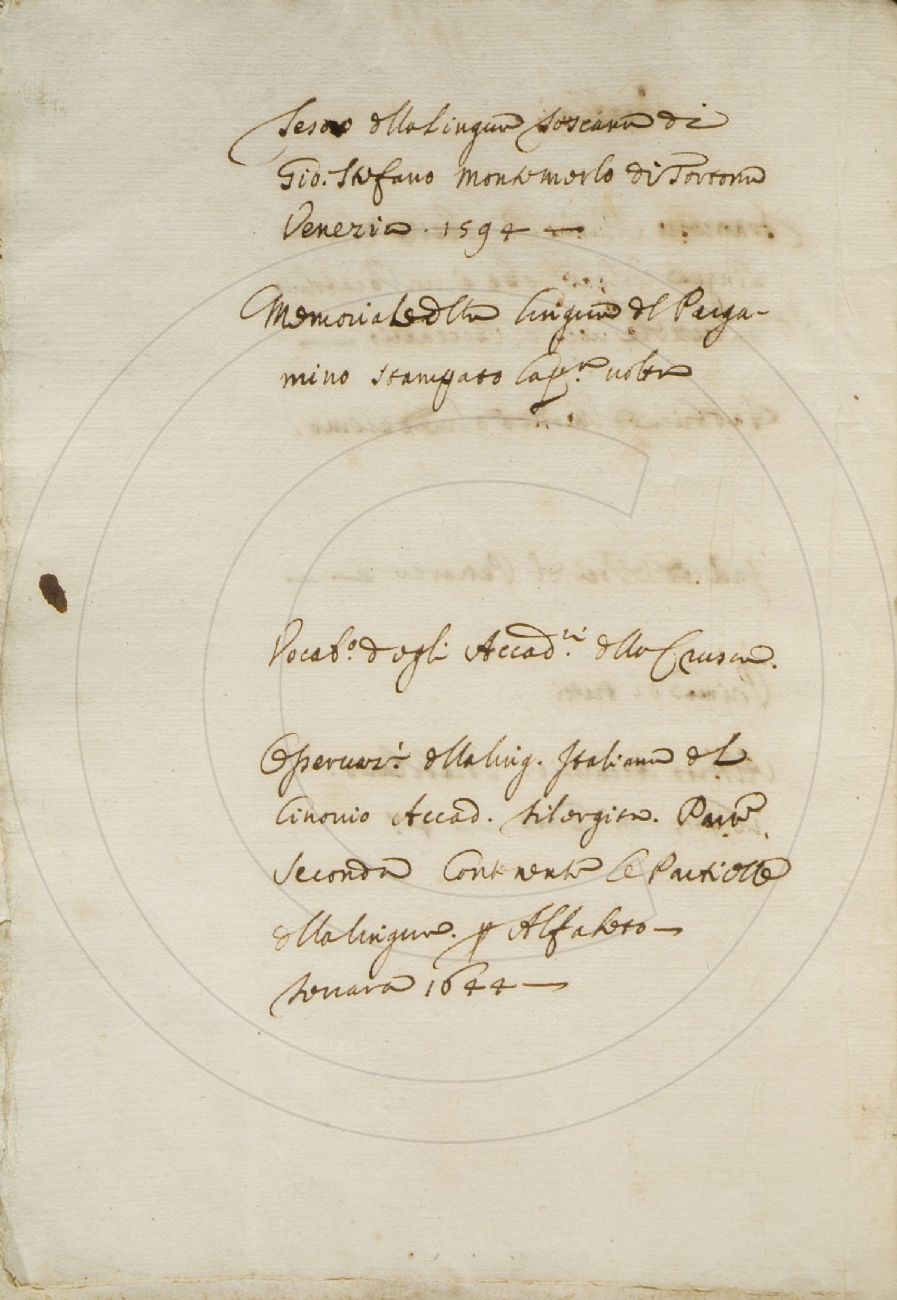 Tesoro della Lingua Toscana di
Gio. Stefano Montemerlo di Tortona
Venezia. 1594 —
Memoriale della lingua del Perga-
mino stampato la p.ª volta
Vocab.º degli Accad.ci della Crusca.
Osservaz.i della ling. Italiana del
Cinonio Accad. Filergita. Parte
Seconda Contenente le Particelle
della lingua. p Alfabeto —
Ferrara 1644 —